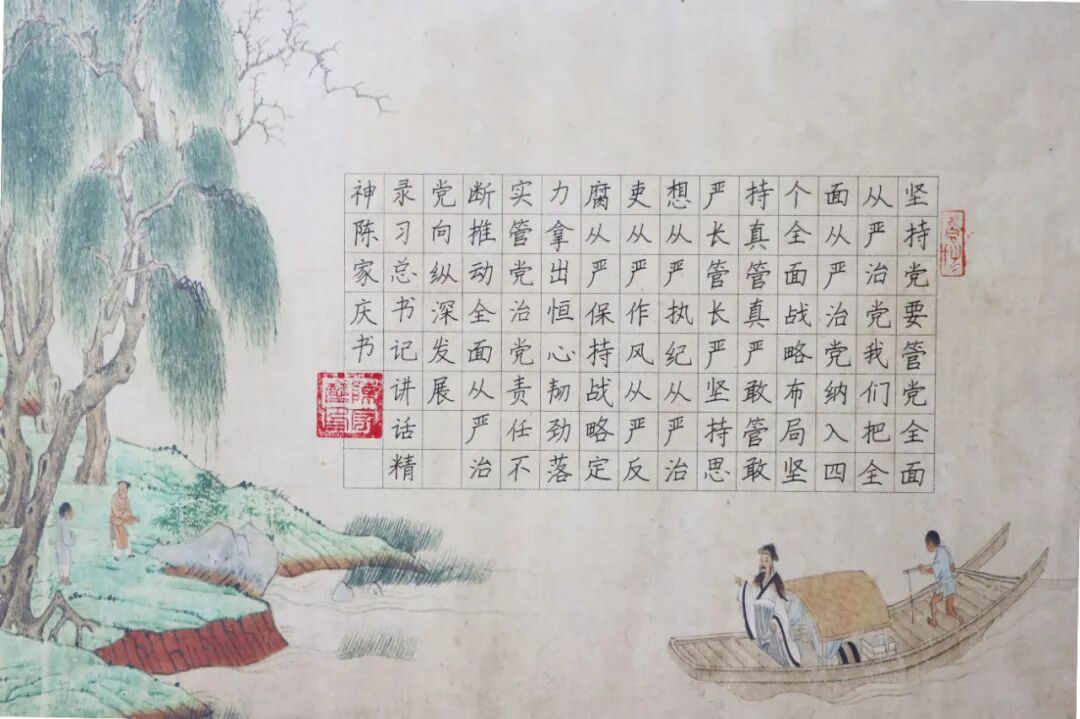 坚持党要管党全面
从严治党我们把全
面从严治党纳入四
个全面战略布局坚
持真管真严敢管敢
严长管长严坚持思
想从严执纪从严治
吏从严作风从严反
腐从严保持战略定
力拿出恒心韧劲落
实管党治党责任不
断推动全面从严治
党向纵深发展
录习总书记讲话精
神陈家庆书